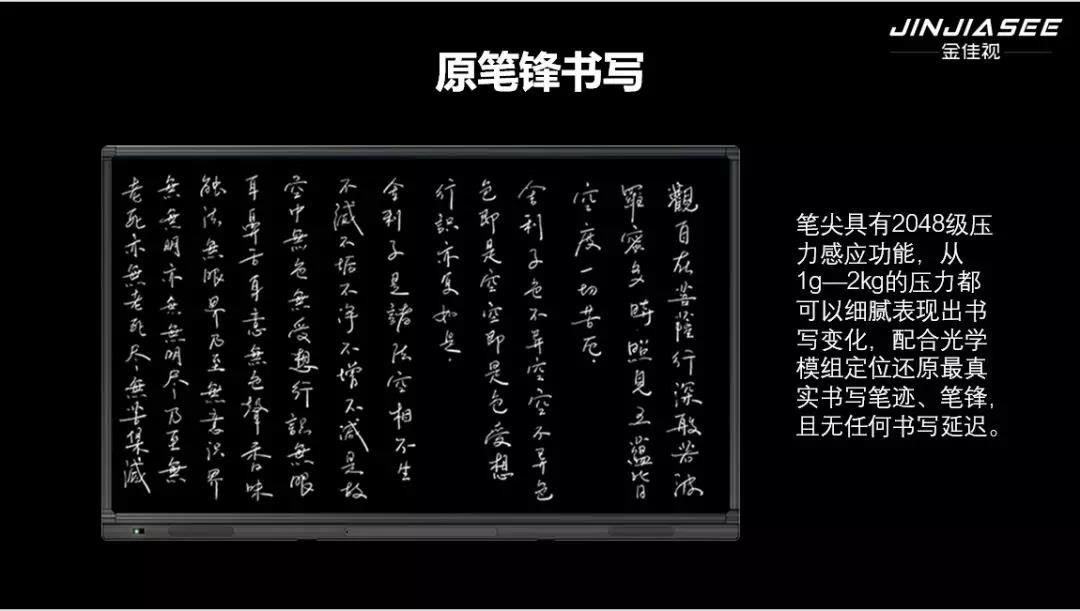 JINJIASEE
金佳视
原笔锋书写
觀自在菩薩行深般若波
羅蜜多時.照見五蘊皆
空度一切苦厄.
舍利子色不异空空不异色
色即是空空即是色受想
行識亦复如是.
舍利子是諸法空相不生
不滅不垢不淨不增不减是故
空中無色無受想行識無眼
耳鼻舌耳意無色聲香味
触法無眼界乃至無意识界
無無明亦無無明尽乃至無
老死亦無老死尽無苦集滅
笔尖具有2048级压
力感应功能，从
1g—2kg的压力都
可以细腻表现出书
写变化，配合光学
模组定位还原最真
实书写笔迹、笔锋，
且无任何书写延迟。